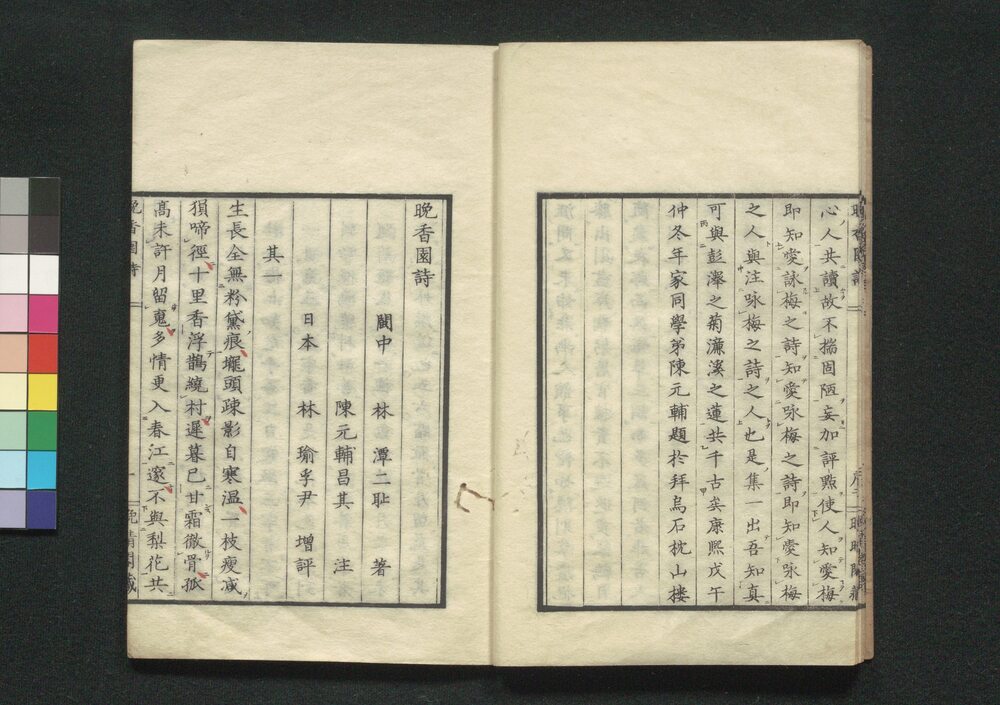 心人共讀故不揣固陋妄加評點使人知愛梅
即知愛詠梅之詩知愛咏梅之詩即知愛咏梅
之人與注咏梅之詩之人也是集一出吾知真
可與彭澤之菊濂溪之蓮共千古矣康熙戊午
仲冬年家同學弟陳元輔題於拜烏石枕山樓
晚香園詩
閩中 林 潭二耻 著
陳元輔昌其 注
日本 林 瑜孚尹 增評
其一
生長全無粉黛痕壠頭疎影自寒温一枝瘦减
猿啼徑十里香浮鵲繞村遲暮已甘霜徹骨孤
高未許月留䰟多情更入春江邃不與梨花共
晚香園詩 一